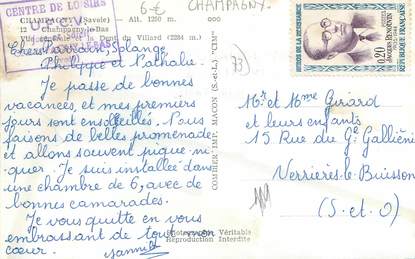 CENTRE DE LOISIRS
6€ CHAMPAGNY
CHAMPAGNY (Savoie) Alt. 1250 m.
12 Champagny-le-Bas
et la Dent du Villard (2284 m.)
"CIM"
COMBIER IMP. MACON (S.-et-L.)
73
Chers Parrain, Solange,
Philippe et Nathalie.
Je passe de bonnes
vacances, et mes premiers
jours sont ensoleillés. Nous
faisons de belles promenades
et allons souvent pique ni-
quer. Je suis installée dans
une chambre de 6, avec de
bonnes camarades.
Je vous quitte en vous
embrassant de tout mon
cœur.
Photographie Véritable
Reproduction Interdite
HÉROS DE LA RÉSISTANCE
0,20
JACQUES RENOUVIN
REPUBLIQUE FRANÇAISE
Mr et Mme Girard
et leurs enfants
15 Rue du Gl Galliéni
Verrières le Buisson
(S-et-O)